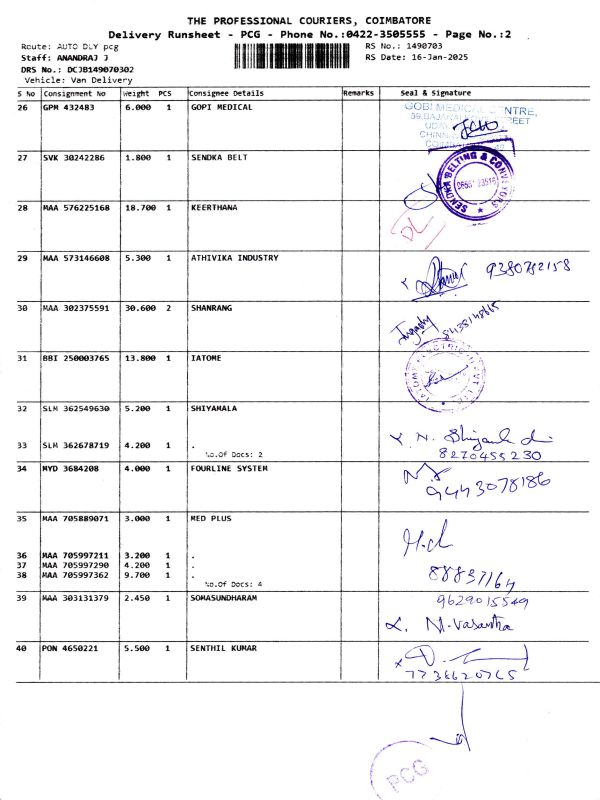 THE PROFESSIONAL COURIERS, COIMBATORE
Delivery Runsheet - PCG - Phone No.:0422-3505555 - Page No.:2
Route: AUTO DLY pcg
RS No.: 1490703
Staff: ANANDRAJ J
RS Date: 16-Jan-2025
DRS No.: DCJB149070302
Vehicle: Van Delivery
S No Consignment No Weight PCS Consignee Details Remarks Seal & Signature
26 GPM 432483 6.000 1 GOPI MEDICAL
GOBI MEDICAL CENTRE,
27 SVK 30242286 1.800 1 SENDKA BELT
SENDKA BELTING & CONVEYORS
28 MAA 576225168 18.700 1 KEERTHANA
DL
29 MAA 573146608 5.300 1 ATHIVIKA INDUSTRY
9380782158
30 MAA 302375591 30.600 2 SHANRANG
31 BBI 250003765 13.800 1 IATOME
32 SLM 362549630 5.200 1 SHIYAMALA
33 SLM 362678719 4.200 1 .
No.Of Docs: 2
8270455230
34 MYD 3684208 4.000 1 FOURLINE SYSTEM
9443078186
35 MAA 705889071 3.000 1 MED PLUS
36 MAA 705997211 3.200 1 .
37 MAA 705997290 4.200 1 .
38 MAA 705997362 9.700 1 .
No.Of Docs: 4
39 MAA 303131379 2.450 1 SOMASUNDHARAM
9629015549
N-Vasantha
40 PON 4650221 5.500 1 SENTHIL KUMAR
PCG